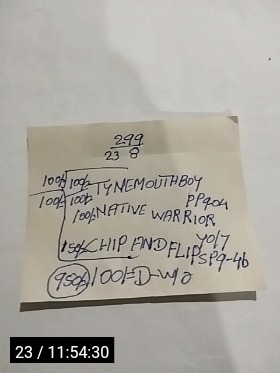 299
23 8
100/- 100/- TYNEMOUTHBOY
100/- 100/- PP904
100/- NATIVE WARRIOR
150/- CHIP AND FLIP 40/7
SP9-4b
950/- 100/- D-w/o
23 / 11:54:30